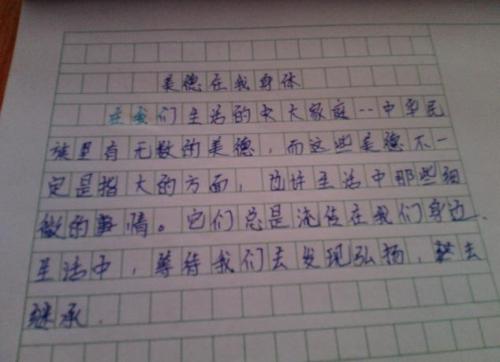 美德在我身体
在我们生活的大大家庭--中华民
族里有无数的美德，而这些美德不一
定是指大的方面，也许生活中那些细
微的事情。它们总是流传在我们身边.
生活中，等待我们去发现弘扬，去
继承.